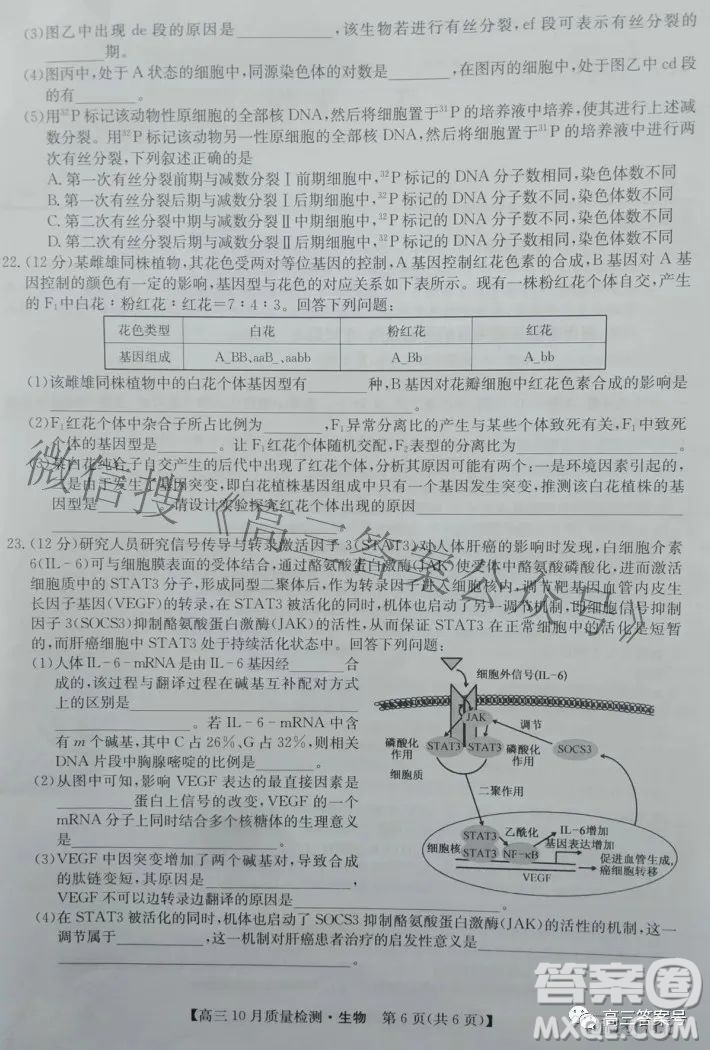 (3)图乙中出现 de 段的原因是________,该生物若进行有丝分裂,ef 段可表示有丝分裂的
________期。
(4)图丙中,处于 A 状态的细胞中,同源染色体的对数是________,在图丙的细胞中,处于图乙中 cd 段
的有________。
(5)用³²P 标记该动物性原细胞的全部核 DNA,然后将细胞置于³¹P 的培养液中培养,使其进行上述减
数分裂。用³²P 标记该动物另一性原细胞的全部核 DNA,然后将细胞置于³¹P 的培养液中进行两
次有丝分裂,下列叙述正确的是
A. 第一次有丝分裂前期与减数分裂Ⅰ前期细胞中,³²P 标记的 DNA 分子数相同,染色体数不同
B. 第一次有丝分裂后期与减数分裂Ⅰ后期细胞中,³²P 标记的 DNA 分子数不同,染色体数不同
C. 第二次有丝分裂中期与减数分裂Ⅱ中期细胞中,³²P 标记的 DNA 分子数不同,染色体数不同
D. 第二次有丝分裂后期与减数分裂Ⅱ后期细胞中,³²P 标记的 DNA 分子数不同,染色体数相同
22. (12 分)某雌雄同株植物,其花色受两对等位基因的控制,A 基因控制红花色素的合成,B 基因对 A 基
因控制的颜色有一定的影响,基因型与花色的对应关系如下表所示。现有一株粉红花个体自交,产生
的 F₁ 中白花∶粉红花∶红花=7∶4∶3。回答下列问题:
花色类型 白花 粉红花 红花
基因组成 A_BB、aaB_、aabb A_Bb A_bb
(1)该雌雄同株植物中的白花个体基因型有________种,B 基因对花瓣细胞中红花色素合成的影响是
________。
(2)F₁ 红花个体中杂合子所占比例为________,F₁ 异常分离比的产生与某些个体致死有关,F₁ 中致死
个体的基因型是________。让 F₁ 红花个体随机交配,F₂ 表型的分离比为________。
(3)某白花纯合子自交产生的后代中出现了红花个体,分析其原因可能有两个:一是环境因素引起的,
二是由于发生了基因突变,即白花植株基因组成中只有一个基因发生突变,推测该白花植株的基
因型是________。请设计实验探究红花个体出现的原因________
________。
23. (12 分)研究人员研究信号传导与转录激活因子 3(STAT3)对人体肝癌的影响时发现,白细胞介素
6(IL-6)可与细胞膜表面的受体结合,通过酪氨酸蛋白激酶(JAK)使受体中酪氨酸磷酸化,进而激活
细胞质中的 STAT3 分子,形成同型二聚体后,作为转录因子进入细胞核内,调节靶基因血管内皮生
长因子基因(VEGF)的转录,在 STAT3 被活化的同时,机体也启动了另一调节机制,即细胞信号抑制
因子 3(SOCS3)抑制酪氨酸蛋白激酶(JAK)的活性,从而保证 STAT3 在正常细胞中的活化是短暂
的,而肝癌细胞中 STAT3 处于持续活化状态中。回答下列问题:
(1)人体 IL-6-mRNA 是由 IL-6 基因经________合
成的,该过程与翻译过程在碱基互补配对方式
上的区别是________
________。若 IL-6-mRNA 中含
有 m 个碱基,其中 C 占 26%、G 占 32%,则相关
DNA 片段中胸腺嘧啶的比例是________。
(2)从图中可知,影响 VEGF 表达的最直接因素是
________蛋白上信号的改变,VEGF 的一个
mRNA 分子上同时结合多个核糖体的生理意义
是________。
(3)VEGF 中因突变增加了两个碱基对,导致合成
的肽链变短,其原因是________,
VEGF 不可以边转录边翻译的原因是________。
细胞外信号(IL-6)
JAK
调节
磷酸化作用
STAT3
STAT3
磷酸化作用
SOCS3
细胞质
二聚作用
STAT3
乙酰化
IL-6增加
基因表达增加
细胞核
STAT3
NF-κB
促进血管生成,
癌细胞转移
VEGF
(4)在 STAT3 被活化的同时,机体也启动了 SOCS3 抑制酪氨酸蛋白激酶(JAK)的活性的机制,这一
调节属于________,这一机制对肝癌患者治疗的启发性意义是________
________。
【高三 10 月质量检测·生物 第 6 页(共 6 页)】
微信搜《高三答案公众号》
高三答案号
答案圈
MXQE.COM